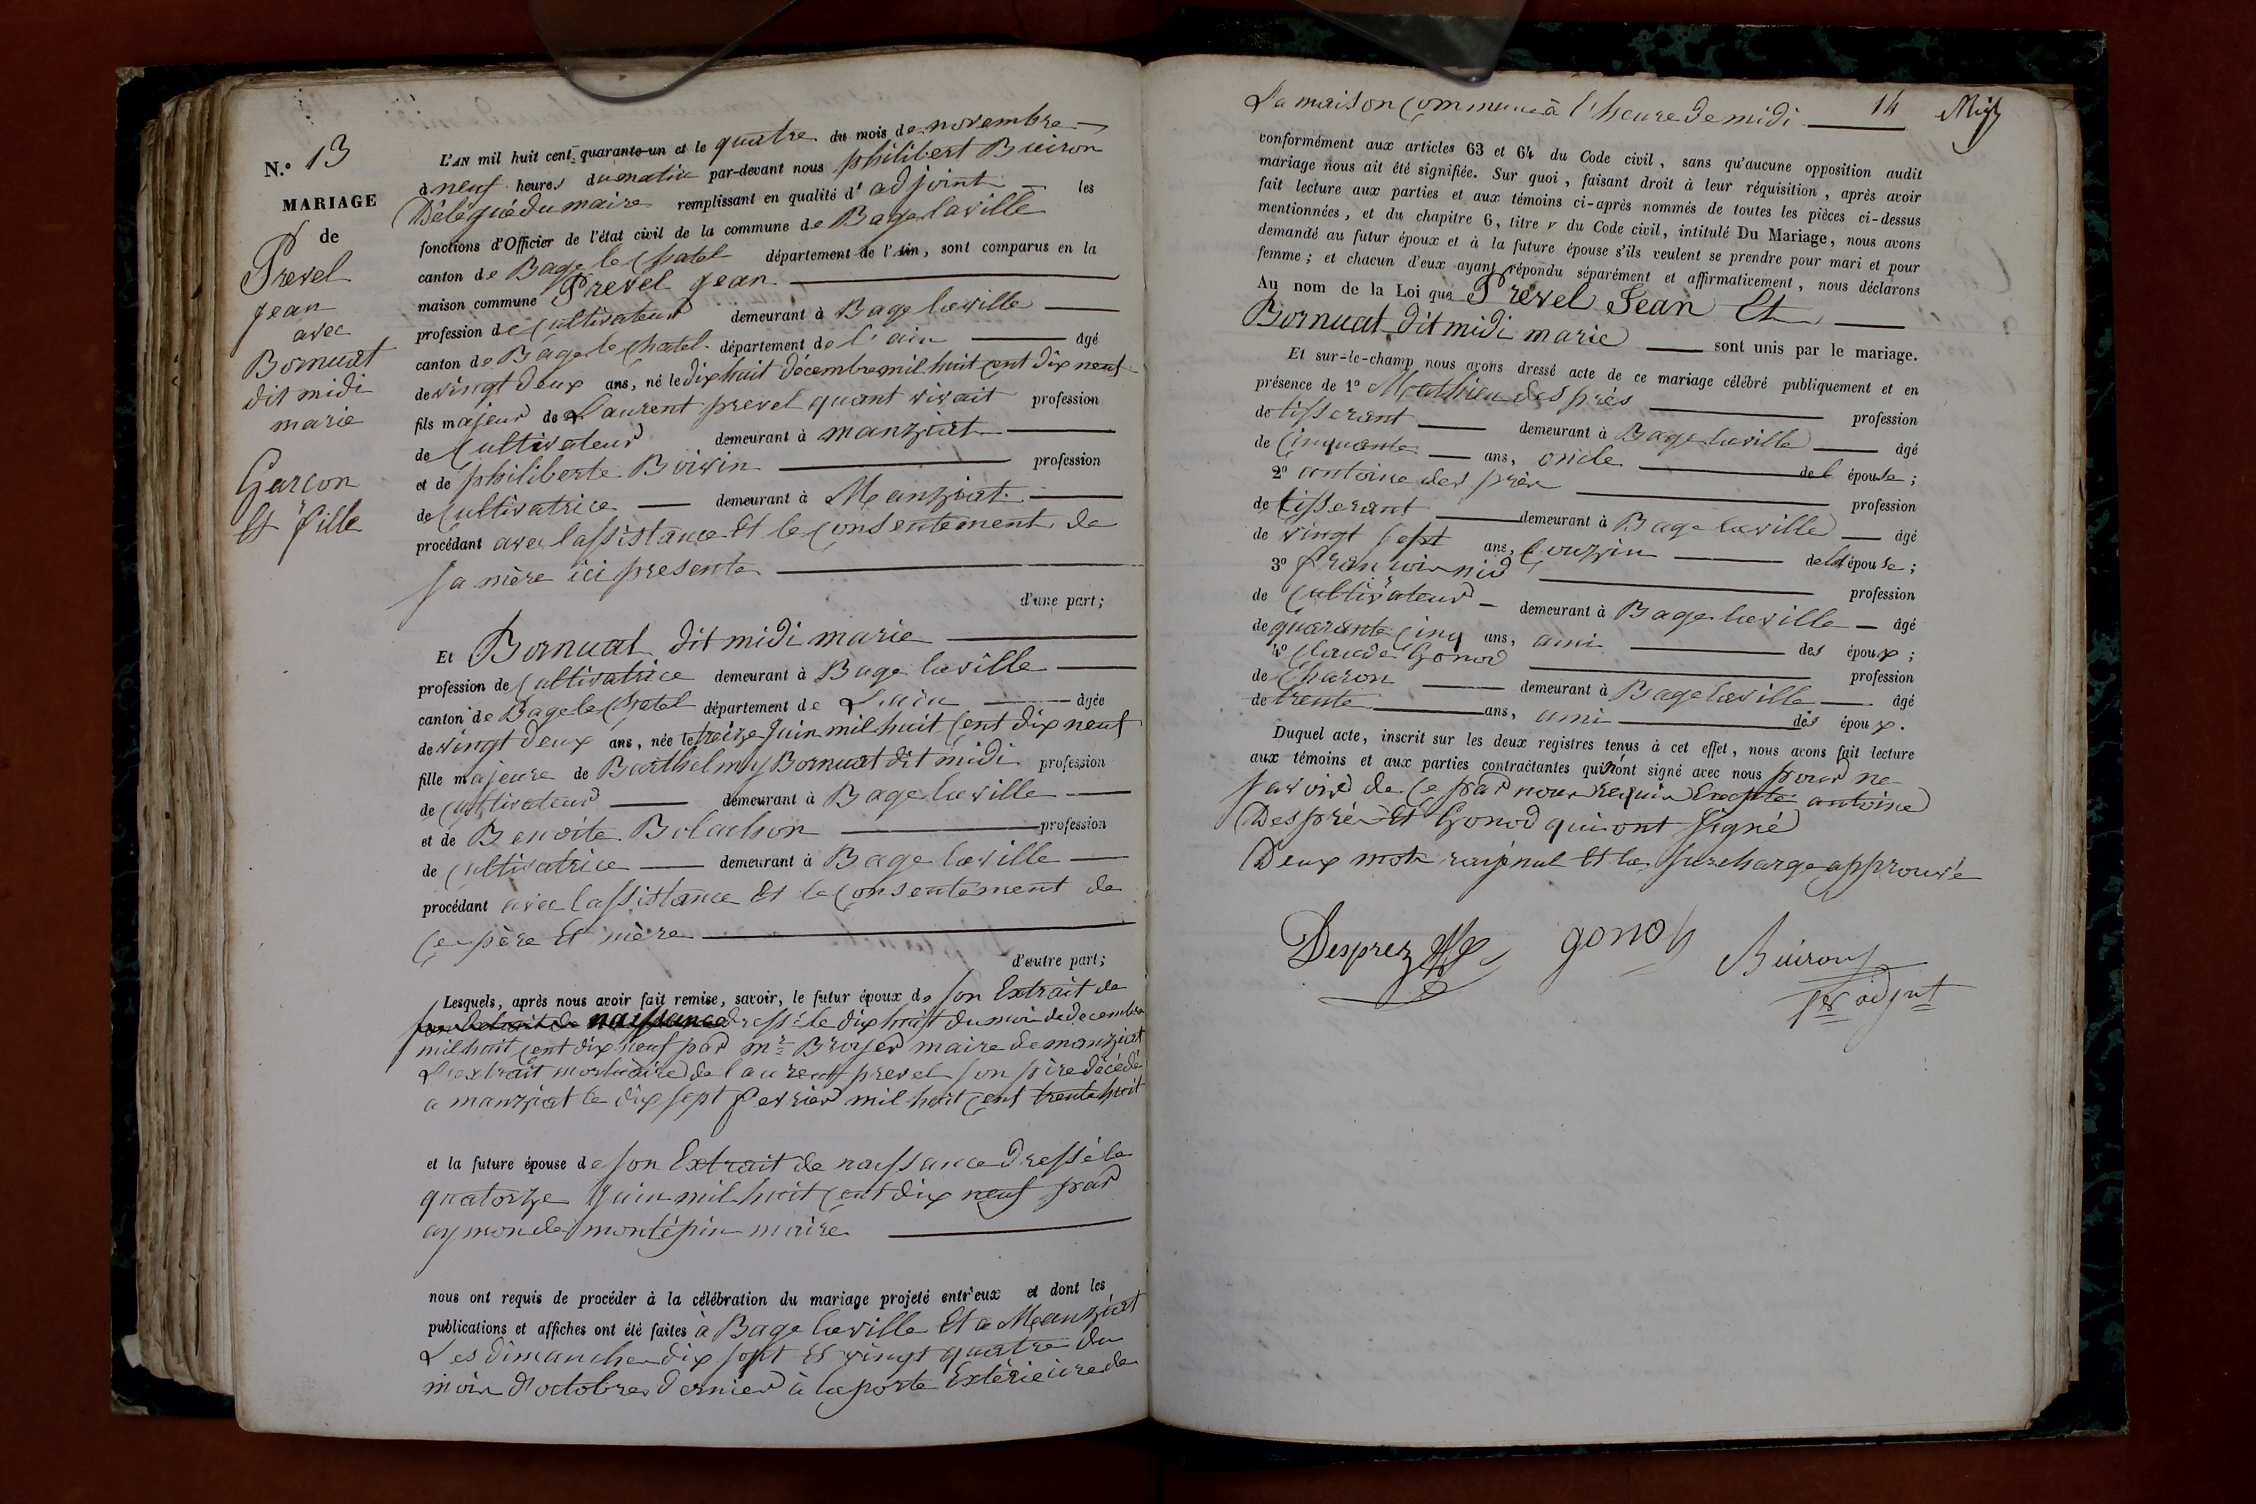 N.º 13
MARIAGE
de
Prevel
jean
avec
Bornuat
dit midi
marie
Garcon
Et fille
L'AN mil huit cent quarante-un et le quatre du mois de novembre
à neuf heures du matin par-devant nous philibert Buiron
Délégué du maire remplissant en qualité d'adjoint les
fonctions d'Officier de l'état civil de la commune de Bage laville
canton de Bage le Chatel département de l'Ain, sont comparus en la
maison commune Prevel jean
profession de Cultivateur demeurant à Bage laville
canton de Bage le Chatel département de l'ain âgé
de vingt deux ans, né le dix huit décembre mil huit cent dix neuf
fils majeur de Laurent prevel quant vivait profession
de Cultivateur demeurant à manziat
et de philiberte Boivin profession
de Cultivatrice demeurant à Manziat
procédant avec lassistance Et le Consentement de
sa mère ici presente
d'une part;
Et Bornuat dit midi marie
profession de Cultivatrice demeurant à Bage laville
canton de Bage le Chatel département de Lain âgée
de vingt deux ans, née le treize juin mil huit cent dix neuf
fille majeure de Barthelmy Bornuat dit midi profession
de Cultivateur demeurant à Bage laville
et de Benoite Bolachon profession
de Cultivatrice demeurant à Bage laville
procédant avec lassistance Et le Consentement de
Ces père Et mère
d'autre part;
Lesquels, après nous avoir fait remise, savoir, le futur époux de son Extrait de
son Extrait de naissance dressé le dix huit du mois de decembre
mil huit cent dix neuf par mr Broyer maire de manziat
Lextrait mortuaire de laurent prevel son père décédé
a manziat le dix sept fevrier mil huit cent trente huit
et la future épouse de son Extrait de naissance dressé le
quatorze juin mil huit cent dix neuf par
aymon de montépin maire
nous ont requis de procéder à la célébration du mariage projeté entr'eux et dont les
publications et affiches ont été faites à Bage laville Et a Manziat
Les dimanches dix sept Et vingt quatre du
mois d'octobre dernier à la porte Extérieure de
La maison Commune à l'heure de midi 14
conformément aux articles 63 et 64 du Code civil, sans qu'aucune opposition audit
mariage nous ait été signifiée. Sur quoi, faisant droit à leur réquisition, après avoir
fait lecture aux parties et aux témoins ci-après nommés de toutes les pièces ci-dessus
mentionnées, et du chapitre 6, titre v du Code civil, intitulé Du Mariage, nous avons
demandé au futur époux et à la future épouse s'ils veulent se prendre pour mari et pour
femme; et chacun d'eux ayant répondu séparément et affirmativement, nous déclarons
Au nom de la Loi que Prevel Jean Et
Bornuat dit midi marie sont unis par le mariage.
Et sur-le-champ nous avons dressé acte de ce mariage célébré publiquement et en
présence de 1º Mathieu des prés
de tisserant demeurant à Bage laville profession
de Cinquante ans, oncle de l épouse; âgé
2º antoine des prés
de tisserant demeurant à Bage laville profession
de vingt sept ans, Couzzin de l'épouse; âgé
3º
de Cultivateur demeurant à Bage laville profession
de quarante Cinq ans, ami des époux; âgé
4º Claude Gonod
de Charon demeurant à Bage laville profession
de trente ans, ami des époux. âgé
Duquel acte, inscrit sur les deux registres tenus à cet effet, nous avons fait lecture
aux témoins et aux parties contractantes qui n'ont signé avec nous pour ne
savoir de Ce par nous requis Excepté antoine
Després Et Gonod qui ont signé
Deux mots rayé nul Et la surcharge approuvé
Desprez gonod Buiron
1er adjint